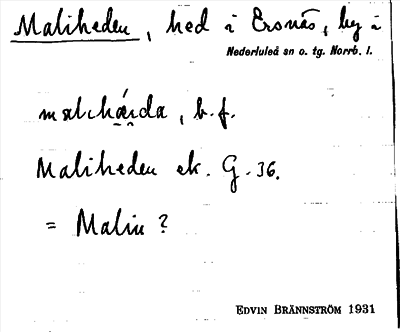 Maliheden, hed i Ersnäs, by i
Nederluleå sn o. tg. Norrb. l.
b. f.
Maliheden ek. G. 36.
= Malin ?
EDVIN BRÄNNSTRÖM 1931